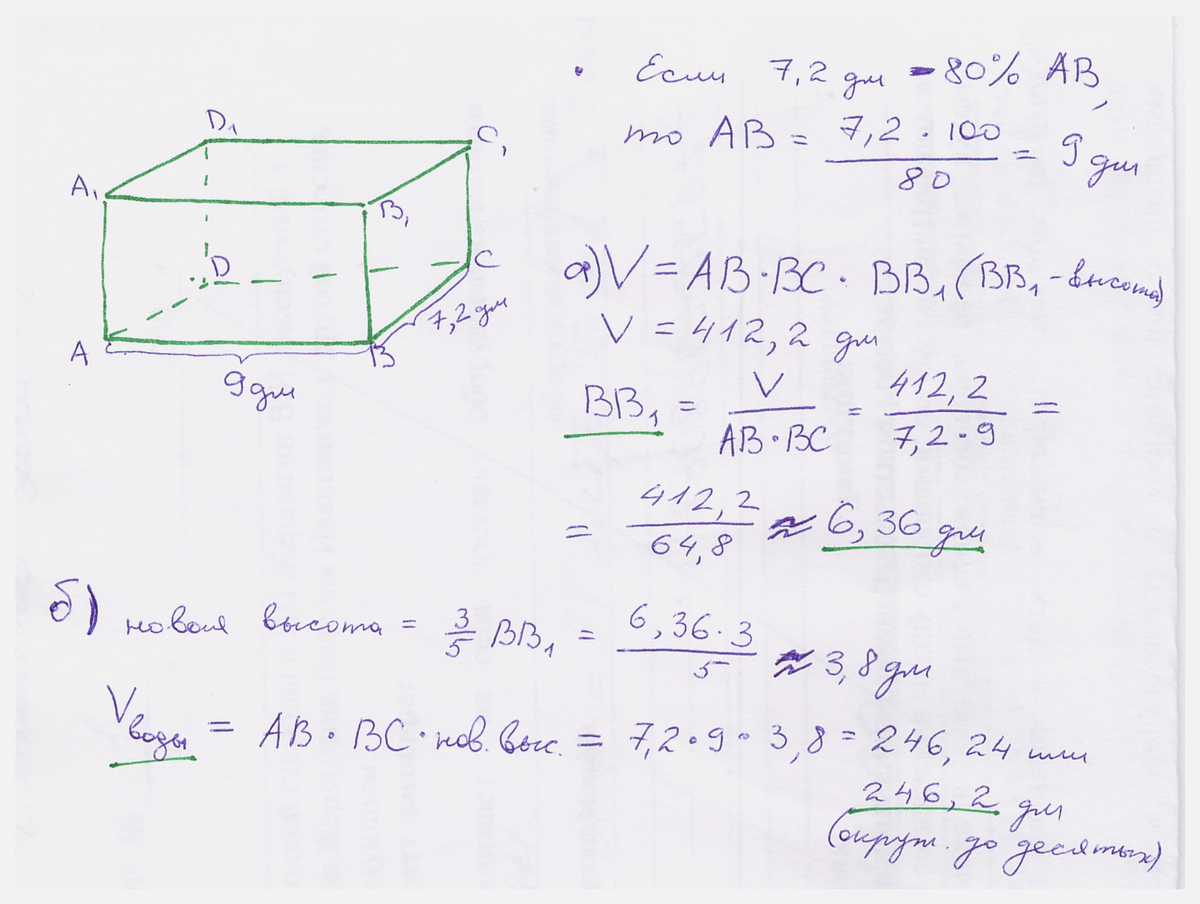 D₁
C₁
A₁
B₁
D
C
A
B
7,2 дм
9 дм
• Если 7,2 дм - 80% АВ,
то АВ = (7,2 · 100)/80 = 9 дм
а) V = АВ · ВС · ВВ₁ (ВВ₁ - высота)
V = 412,2 дм
ВВ₁ = V/(АВ · ВС) = 412,2/(7,2 · 9) =
= 412,2/64,8 ≈ 6,36 дм
б) новая высота = 3/5 ВВ₁ = (6,36 · 3)/5 ≈ 3,8 дм
V воды = АВ · ВС · нов. выс. = 7,2 · 9 · 3,8 = 246,24 или
246,2 дм
(округ. до десятых)